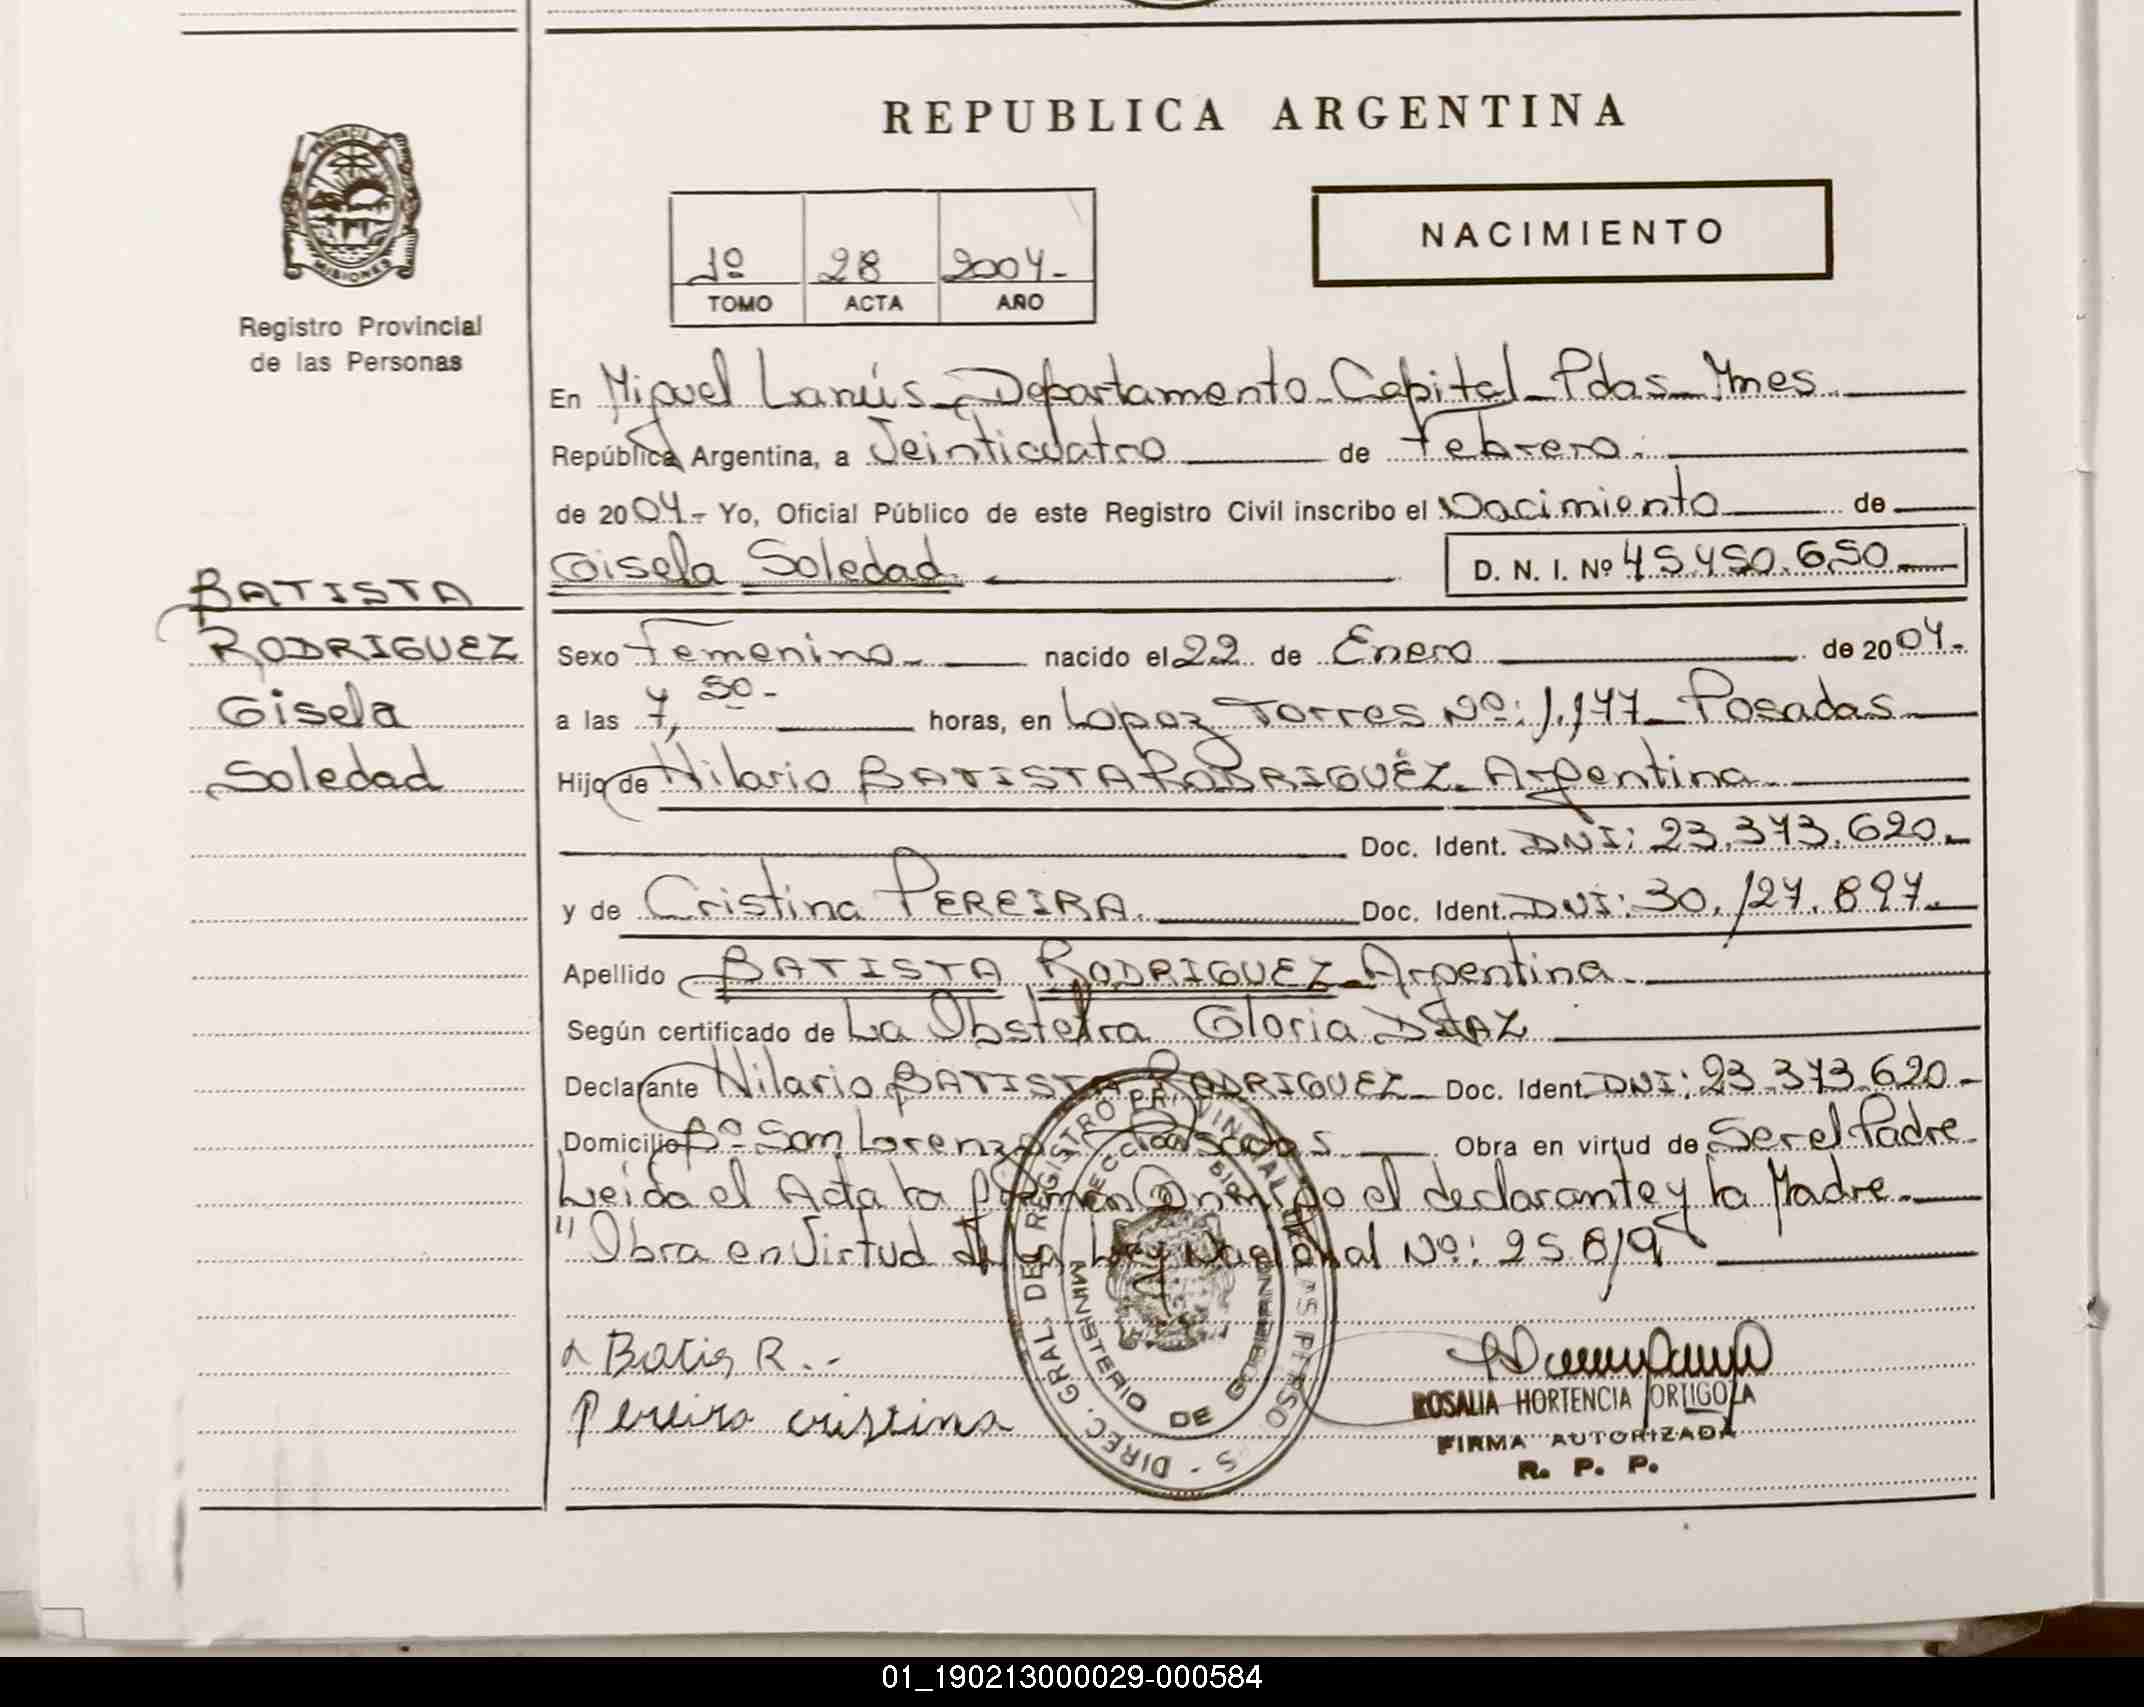 REPUBLICA ARGENTINA
PROVINCIA DE MISIONES
Registro Provincial
de las Personas
NACIMIENTO
1º 28 2004-
TOMO ACTA AÑO
BATISTA
RODRIGUEZ
Gisela
Soledad
En Miguel Lanús - Departamento Capital - Pdas - Mnes
República Argentina, a Veinticuatro de Febrero.
de 2004- Yo, Oficial Público de este Registro Civil inscribo el Nacimiento de
Gisela Soledad. D. N. I. Nº 45.450.650-
Sexo Femenino nacido el 22 de Enero de 2004-
a las 7,50- horas, en Lopez Torres Nº: 1.177 - Posadas
Hijo de Hilario BATISTA RODRIGUEZ - Argentina
Doc. Ident. DNI: 23.373.620-
y de Cristina PEREIRA. Doc. Ident. DNI: 30.127.897-
Apellido BATISTA RODRIGUEZ - Argentina
Según certificado de La Obstetra Gloria DIAZ
Declarante Hilario BATISTA RODRIGUEZ - Doc. Ident. DNI: 23.373.620-
Domicilio Bº San Lorenzo Posadas Obra en virtud de Ser el Padre
Leida el Acta la firman Conmigo el declarante y la Madre -
"Obra en Virtud de la Ley Nacional Nº: 25.819"
Batis R. -
Pereira cristina
DIREC. GRAL. DEL REGISTRO PROVINCIAL DE LAS PERSONAS
MINISTERIO DE GOBIERNO
ROSALIA HORTENCIA ORTIGOZA
FIRMA AUTORIZADA
R. P. P.
01_190213000029-000584